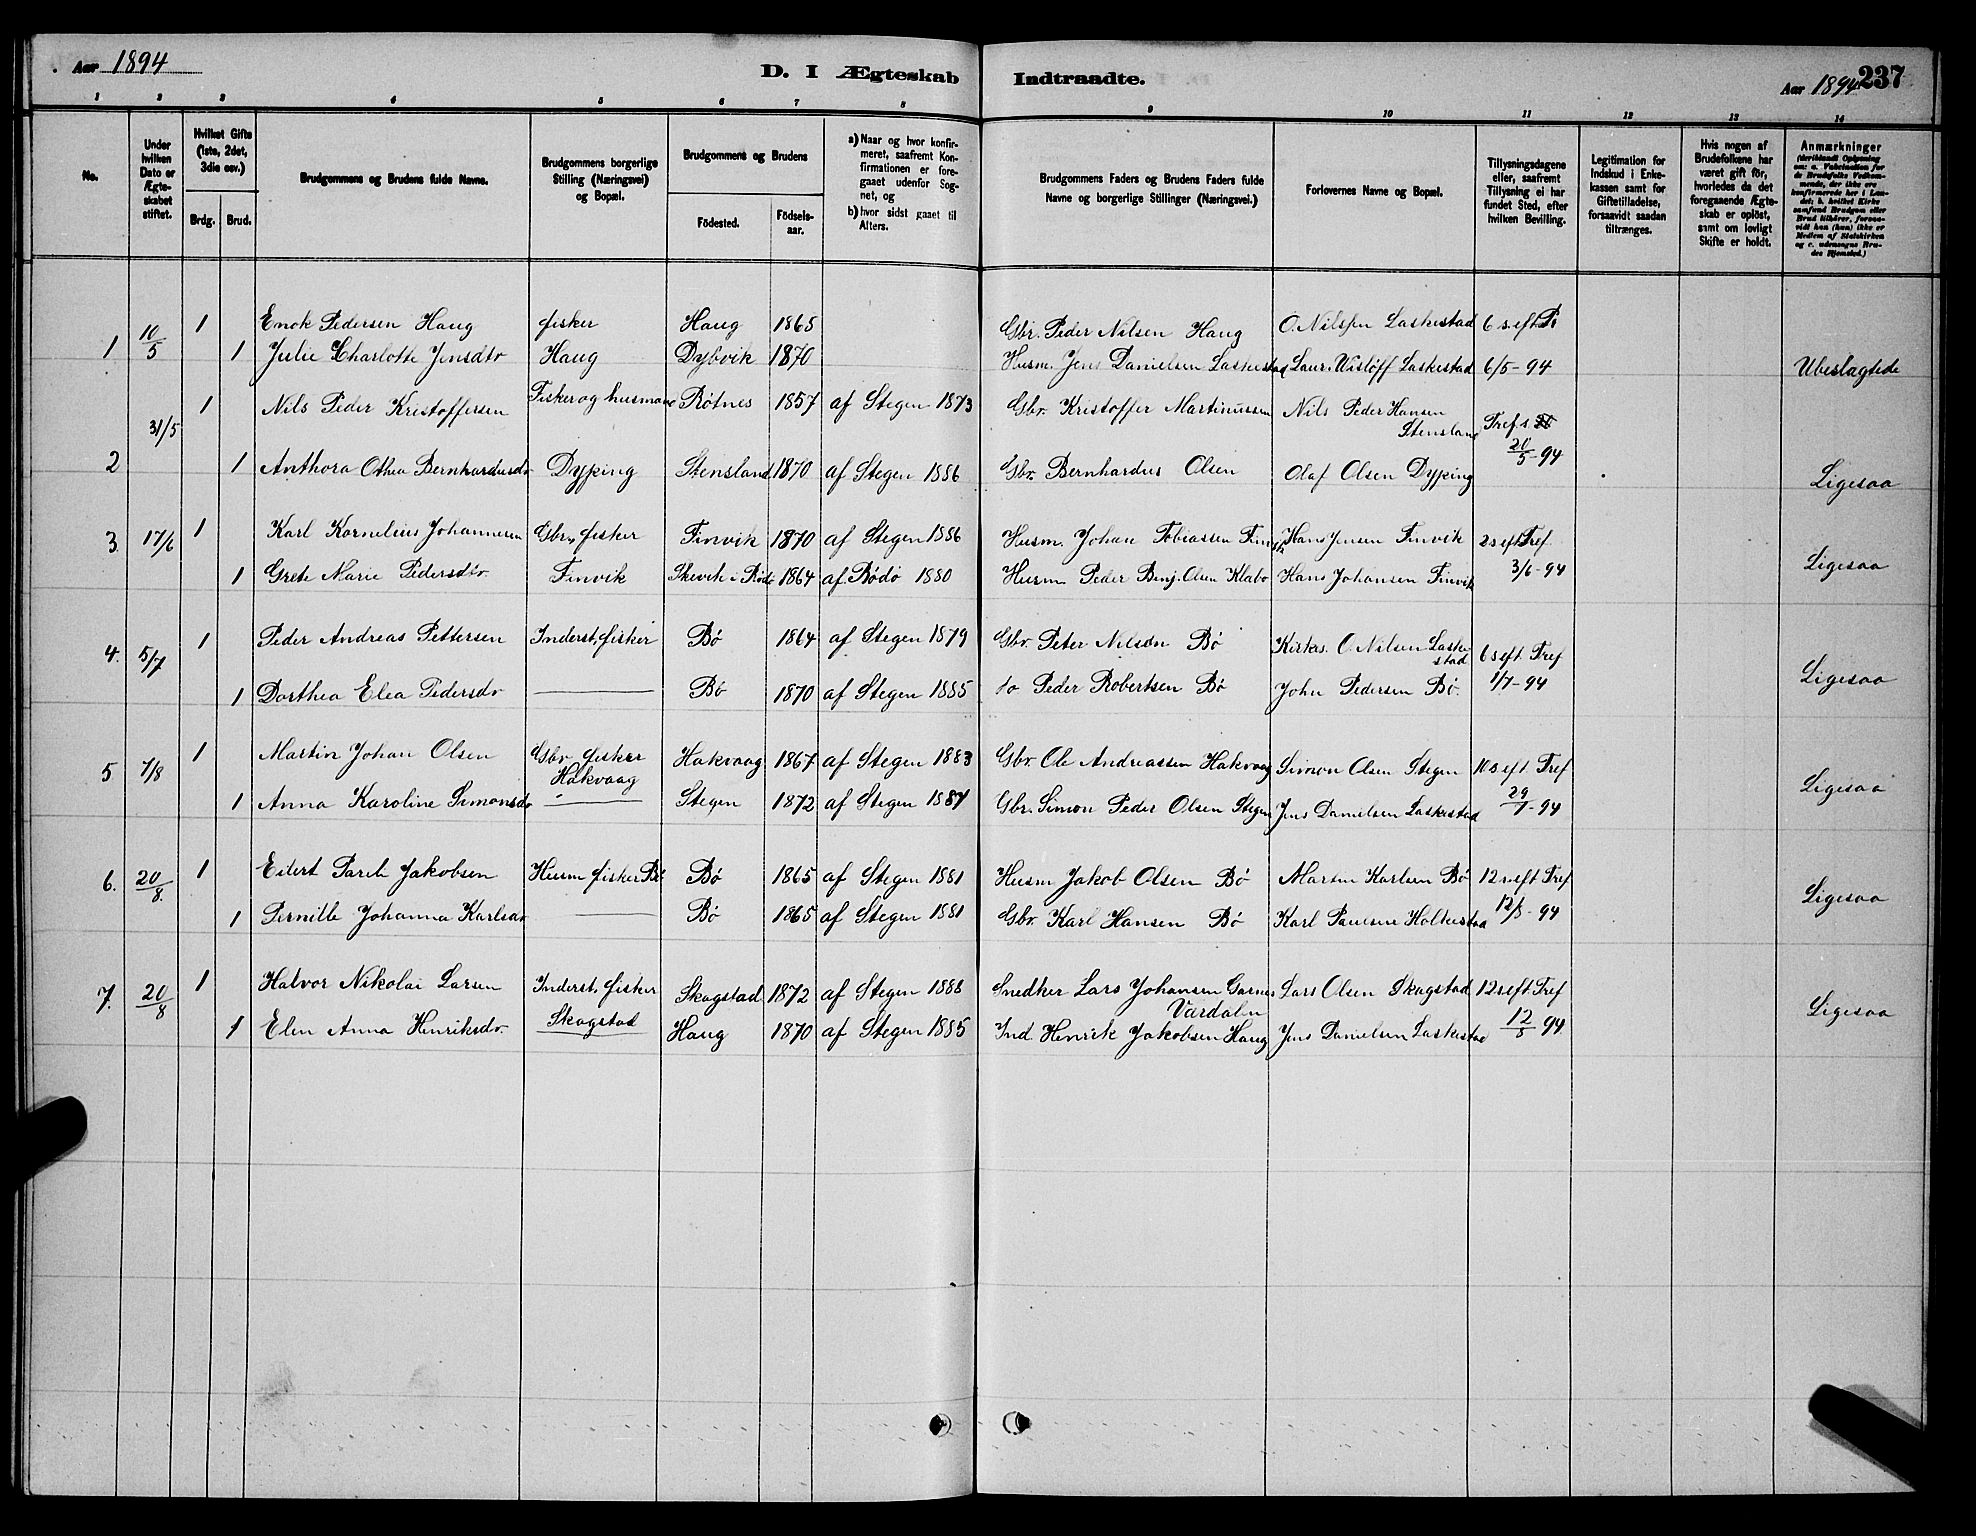 Aar 1894
D. I Ægteskab Indtraadte.
Aar 1894 237
1 2 3 4 5 6 7 8 9 10 11 12 13 14
No.
Under hvilken Dato er Ægteskabet stiftet.
Hvilket Gifte (1ste, 2det, 3die osv.)
Brdg. Brud.
Brudgommens og Brudens fulde Navne.
Brudgommens borgerlige Stilling (Næringsvei) og Bopæl.
Brudgommens og Brudens
Födested. Födsels-aar.
a) Naar og hvor konfirmeret, saafremt Konfirmationen er foregaaet udenfor Sognet, og
b) hvor sidst gaaet til Alters.
Brudgommens Faders og Brudens Faders fulde Navne og borgerlige Stillinger (Næringsvei.)
Forlovernes Navne og Bopæl.
Tillysningsdagene eller, saafremt Tillysning ei har fundet Sted, efter hvilken Bevilling.
Legitimation for Indskud i Enkekassen samt for Giftetilladelse, forsaavidt saadan tiltrænges.
Hvis nogen af Brudefolkene har været gift för, hvorledes da det foregaaende Ægteskab er oplöst, samt om lovligt Skifte er holdt.
Anmærkninger
1 10/5 1 Enok Pedersen Haug fisker Haug 1865 Gbr. Peder Nilsen Haug O. Nilssen Laskestad 6 s. eft. Tr
1 Julie Charlotte Jensdtr Haug Dybvik 1870 Husm. Jens Danielsen Laskestad Laur. Wisløff Laskestad 6/5-94 Ubeslagtede
2 31/5 1 Nils Peder Kristoffersen Fisker og husmand Røtnes 1857 af Stegen 1873 Gbr. Kristoffer Martinussen Nils Peder Hansen Stensland Tref. s.
1 Anthora Othea Bernhardusdr Dyping Stensland 1870 af Stegen 1886 Gbr. Bernhardus Olsen Olaf Olsen Dyping 20/5-94 Ligesaa
3. 17/6 1 Karl Kornelius Johannesen Gbr. fisker Finvik 1870 af Stegen 1886 Husm. Johan Tobiassen Finvik Hans Jensen Finvik 2 s eft Tref
1 Grete Marie Pedersdtr Finvik Skevik i Bødø 1864 af Bødø 1880 Husm Peder Benj. Olsen Klabo Hans Johansen Finvik 3/6-94 Ligesaa
4. 5/7 1 Peder Andreas Pettersen Inderst, fisker Bø 1864 af Stegen 1879 Gbr. Peter Nilsen Bø Kirkes. O. Nilsen Laskestad 6 s eft. Tref
1 Dorthea Elea Pedersdr Bø 1870 af Stegen 1885 do Peder Robertsen Bø John Pedersen Bø. 1/7-94 Ligesaa
5 7/8 1 Martin Johan Olsen Gbr. fisker Hakvaag Hakvaag 1867 af Stegen 1883 Gbr. Ole Andreassen Hakvaag Simon Olsen Stegen 10 s. eft Tref
1 Anna Karoline Simonsdr Stegen 1872 af Stegen 1887 Gbr. Simon Peder Olsen Stegen Jens Danielsen Laskestad 29/7-94 Ligesaa
6. 20/8. 1 Eilert Pareli Jakobsen Husm fisker Bø Bø 1865 af Stegen 1881 Husm Jakob Olsen Bø Martin Karlsen Bø 12 s. eft Tref
1 Pernille Johanna Karlsdr Bø 1865 af Stegen 1881 Gbr. Karl Hansen Bø Karl Paulsen Holkestad 12/8-94 Ligesaa
7. 20/8 1 Halvor Nikolai Larsen Inderst, fisker Skogstad 1872 af Stegen 1888 Snedker Lars Johansen Garnes Værdalen Lars Olsen Skogstad 12 s eft. Tref
1 Elen Anna Henriksdr. Skogstad Haug 1870 af Stegen 1885 Ind Henrik Jakobsen Haug Jens Danielsen Laskestad 12/8 94 Ligesaa